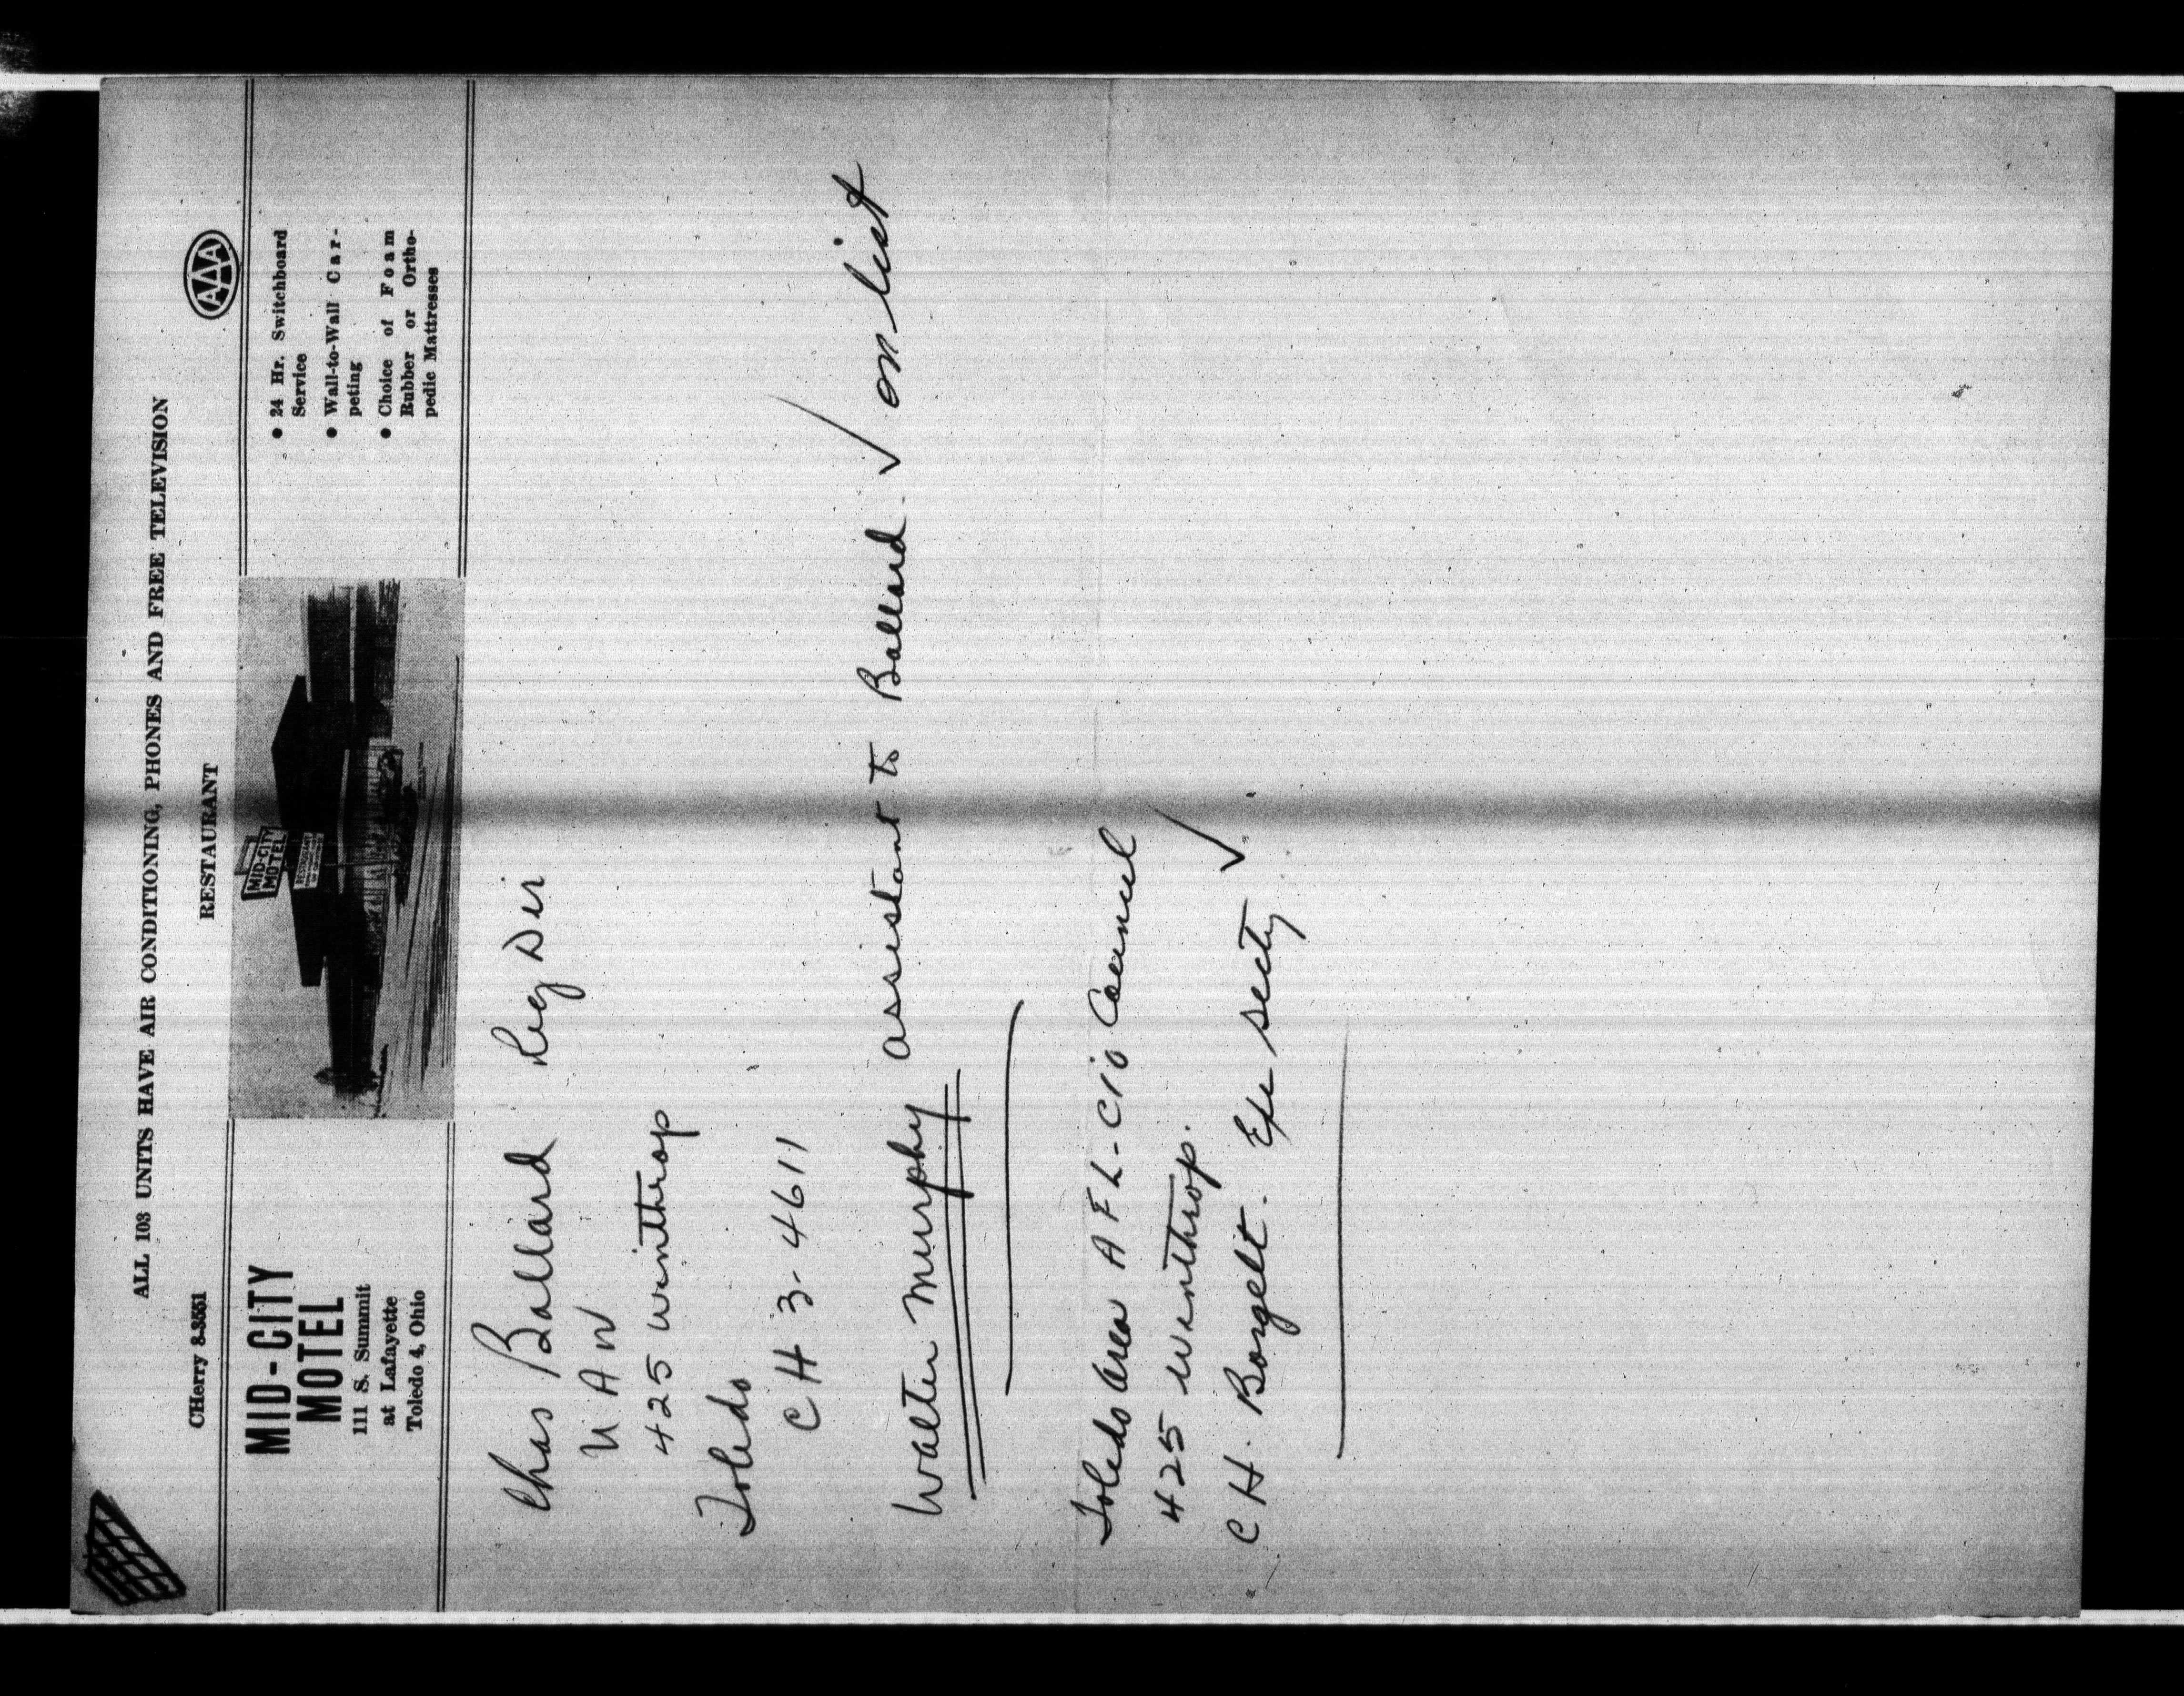 ALL 103 UNITS HAVE AIR CONDITIONING, PHONES AND FREE TELEVISION
CHerry 8-3551
RESTAURANT
AAA
MID-CITY
MOTEL
111 S. Summit
at Lafayette
Toledo 4, Ohio
MID-CITY
MOTEL
RESTAURANT
• 24 Hr. Switchboard
Service
• Wall-to-Wall Car-
peting
• Choice of Foam
Rubber or Ortho-
pedic Mattresses
Chas Ballard Reg Dir
UAW
425 Winthrop
Toledo
CH 3-4611
Walter Murphy assistant to Ballard. ✓ on list
Toledo Area AFL-CIO Council
425 Winthrop.
CH. Borgelt. Exe secty ✓